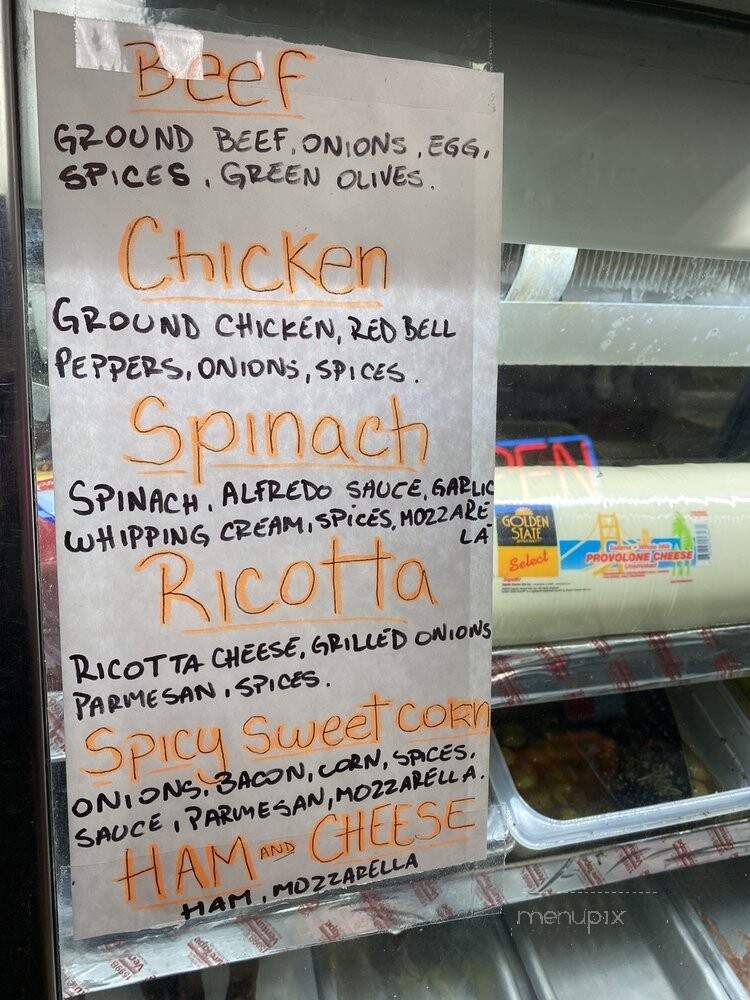 Beef
GROUND BEEF, ONIONS, EGG,
SPICES, GREEN OLIVES.
Chicken
GROUND CHICKEN, RED BELL
PEPPERS, ONIONS, SPICES.
Spinach
SPINACH, ALFREDO SAUCE, GARLIC
WHIPPING CREAM, SPICES, MOZZARE-
LA
Ricotta
RICOTTA CHEESE, GRILLED ONIONS
PARMESAN, SPICES.
Spicy Sweet corn
ONIONS, BACON, CORN, SPICES.
SAUCE, PARMESAN, MOZZARELLA.
HAM AND CHEESE
HAM, MOZZARELLA
GOLDEN
STATE
Select
PROVOLONE CHEESE
menupix